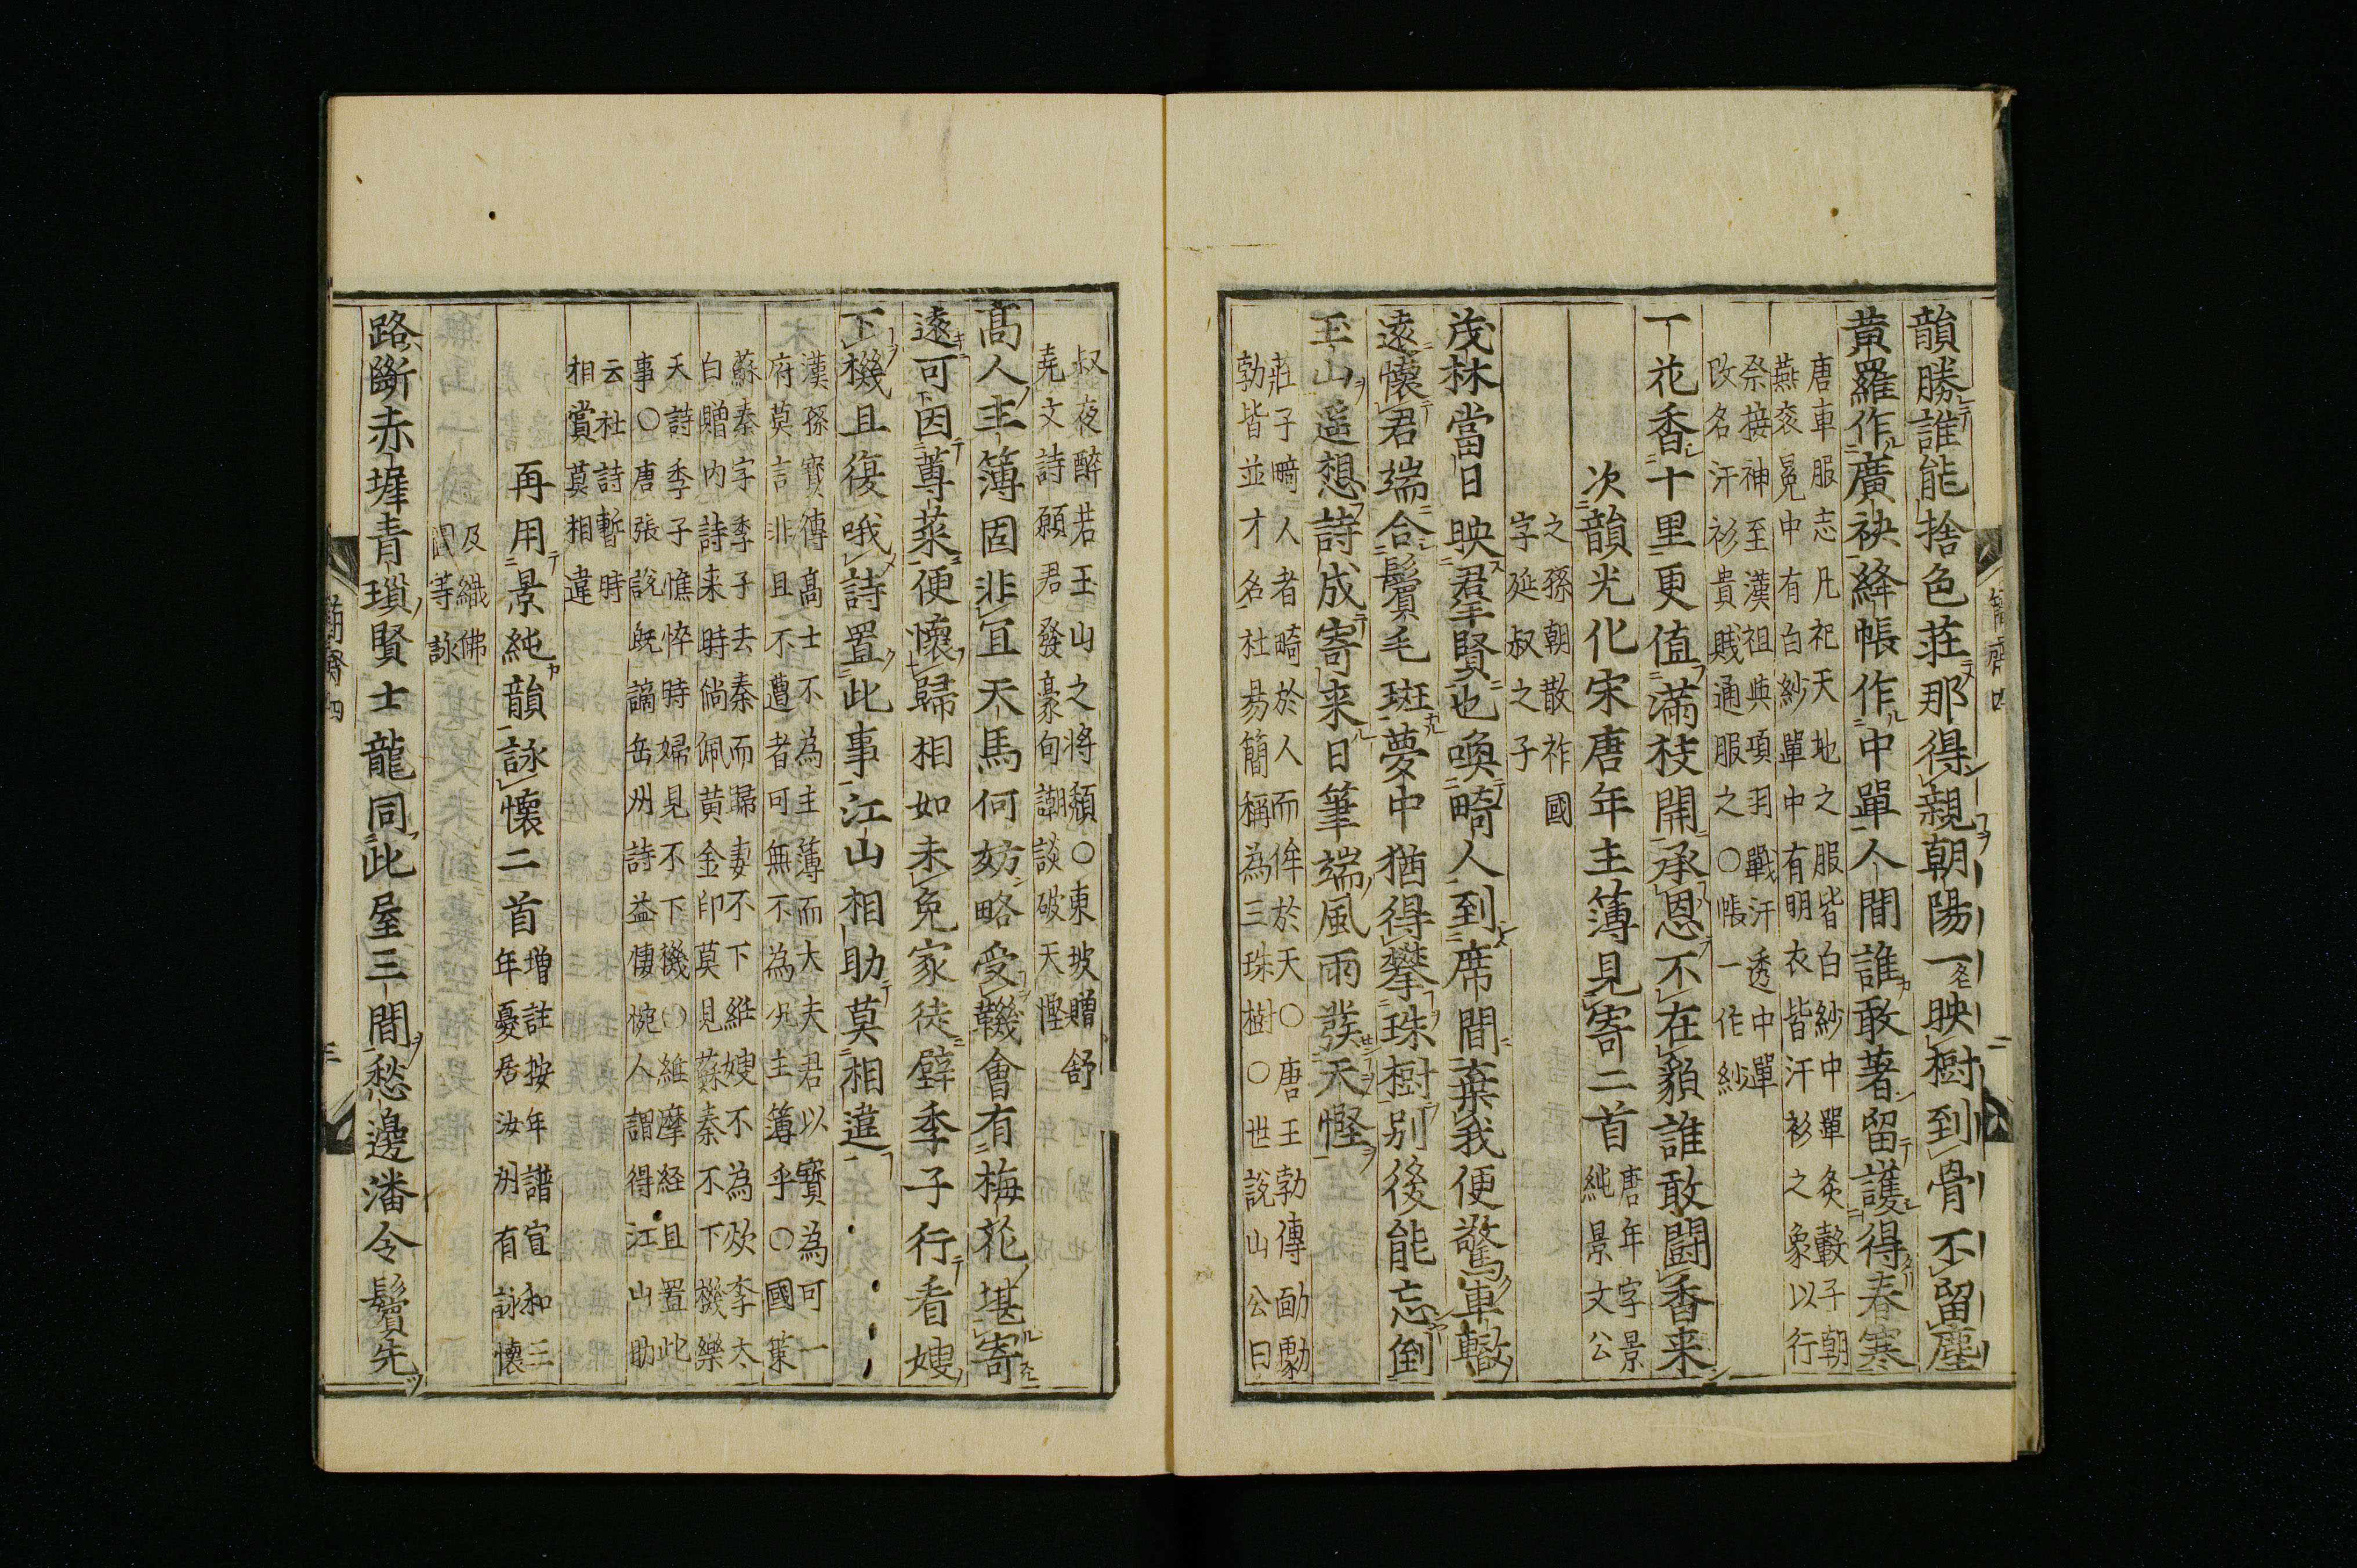 韻勝誰能捨色荘那得親朝陽一映樹到骨不留塵
黃羅作廣袂絳帳作中單人間誰敢著留護得春寒
唐車服志凡祀天地之服皆白紗中單灸轂子朝
燕衮冕中有白紗單中有明衣皆汗衫之象以行
祭接神至漢祖與項羽戰汗透中單
改名汗衫貴賤通服之○帳一作紗
一花香十里更值滿枝開承恩不在貌誰敢鬪香来
次韻光化宋唐年主簿見寄二首
唐年字景
純景文公
之孫朝散祚國
字延叔之子
茂林當日映君賢也喚畸人到席間棄我便驚車轍
遠懷君端合鬢毛斑夢中猶得攀珠樹别後能忘倒
玉山遥想詩成寄来日筆端風雨發天慳
莊子畸人者畸於人而侔於天○唐王勃傳勔勮
勃皆並才名杜易簡稱為三珠樹○世說山公曰
叔夜醉若玉山之將頽○東坡贈舒
尭文詩願君發豪句謿談破天慳
髙人主簿固非冝天馬何妨略受鞿會有梅花堪寄
遠可因蓴菜便懷歸相如未免家徒壁季子行看嫂
下機且復哦詩置此事江山相助莫相違
漢孫寳傳髙士不為主薄而大夫君以寳為可一
府莫言非且不遭者可無不為况主簿乎○國䇿
蘇秦字季子去秦而歸妻不下維嫂不為炊李太
白贈内詩来時倘佩黃金印莫見蘇秦不下機樂
天詩季子憔悴時婦見不下機○維摩経且置此
事○唐張說既謫岳州詩益悽惋人謂得江山助
云杜詩暫時
相賞莫相違
再用景純韻詠懷二首
增註按年譜宣和三
年憂居汝州有詠懷
及織佛
圖等詠
路斷赤墀青瑣賢士龍同此屋三間愁邊潘令鬢先
簡齋四
二
簡齋四
三